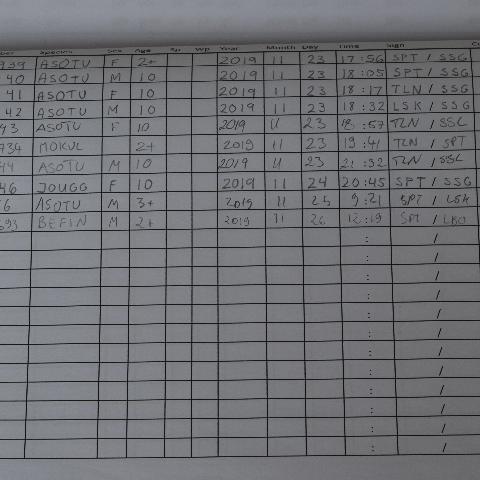 Species Sex Age Sp Wp Year Month Day Time Sign
939 ASOTU F 2+ 2019 11 23 17:56 SPT / SSG
40 ASOTU M 10 2019 11 23 18:05 SPT / SSG
41 ASOTU F 10 2019 11 23 18:17 TLN / SSG
42 ASOTU M 10 2019 11 23 18:32 LSK / SSG
43 ASOTU F 10 2019 11 23 18:57 TLN / SSL
734 MOKUL 2+ 2019 11 23 19:41 TLN / SPT
44 ASOTU M 10 2019 11 23 21:32 TLN / SSL
46 JOUGG F 10 2019 11 24 20:45 SPT / SSG
6 ASOTU M 3+ 2019 11 25 9:21 SPT / LSK
693 BEFIN M 2+ 2019 11 26 12:19 SPT / LBO
: /
: /
: /
: /
: /
: /
: /
: /
: /
: /
: /
: /